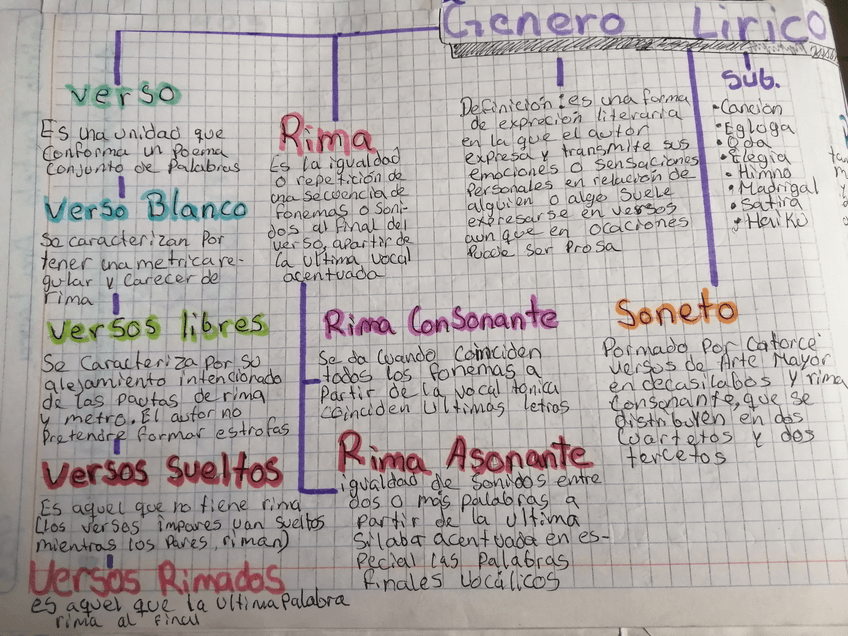 Género Lirico
verso
Es una unidad que
conforma un poema
conjunto de palabras
Verso Blanco
Se caracterizan por
tener una metrica re-
gular y carecer de
rima
versos libres
Se caracteriza por su
alejamiento intencionado
de las pautas de rima
y metro. El autor no
Pretendre formar estrofas
Versos Sueltos
Es aquel que no tiene rima
(los versos impares van sueltos
mientras los pares, riman)
Versos Rimados
es aquel que la ultima palabra
rima al final
Rima
Es la igualdad
o repetición de
una secuencia de
fonemas o soni-
dos al final del
verso, apartir de
la ultima vocal
acentuada
Rima Consonante
Se da cuando coinciden
todos los fonemas a
Partir de la vocal tonica
coinciden ultimas letras
Rima Asonante
igualdad de sonidos entre
dos o más palabras a
partir de la ultima
silaba acentuada en es-
pecial las palabras
finales vocálicos
Definición: es una forma
de expreción literaria
en la que el autor
expresa y transmite sus
emociones o sensaciones
personales en relación de
alguien o algo suele
expresarse en versos
aun que en ocaciones
puede ser prosa
Sub.
• Canción
• Egloga
• Oda
• Elegia
• Himno
• Madrigal
• Satira
• Haikú
Soneto
Formado por catorce
versos de Arte Mayor
endecasilabos y rima
consonante, que se
distribuyen en dos
cuartetos y dos
tercetos